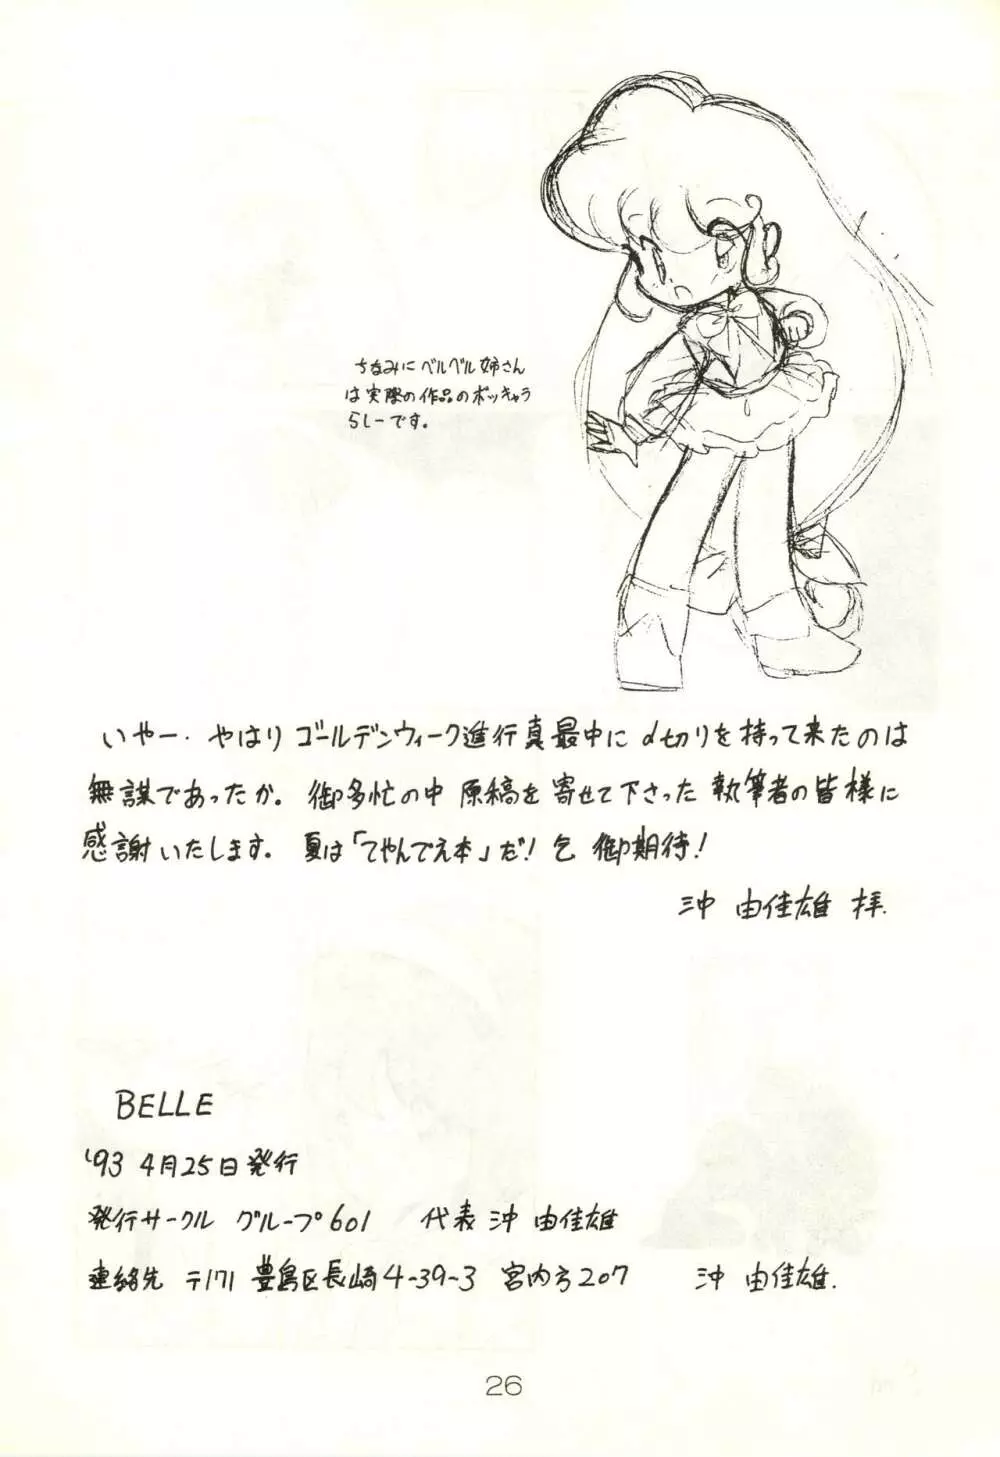 ちなみにベルベル姉さん
は実際の作品のボッキャラ
らしーです。
いやー・やはりゴールデンウィーク進行真最中に〆切りを持って来たのは
無謀であったか。御多忙の中原稿を寄せて下さった執筆者の皆様に
感謝いたします。夏は「てやんでえ本」だ！乞御期待！
沖由佳雄拝.
BELLE
'93 4月25日発行
発行サークル グループ601 代表 沖由佳雄
連絡先 〒171 豊島区長崎4-39-3 宮内方207 沖由佳雄.
26